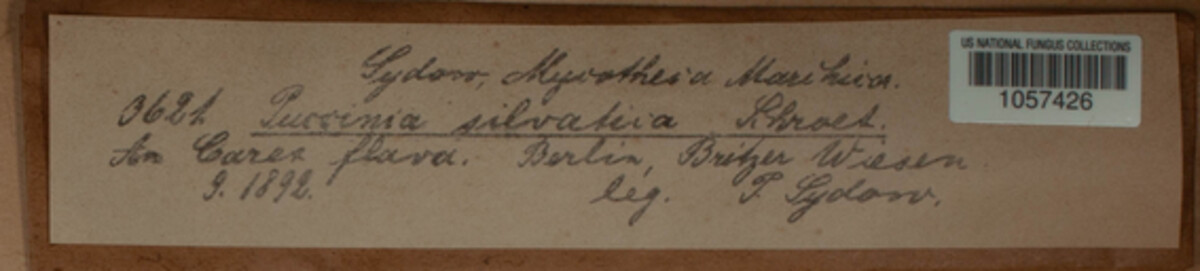 Sydow, Mycotheca Marchica.
3621 Puccinia silvatica Schroet.
An Carex flava. Berlin, Britzer Wiesen
9. 1892. leg. P. Sydow.
US NATIONAL FUNGUS COLLECTIONS
1057426